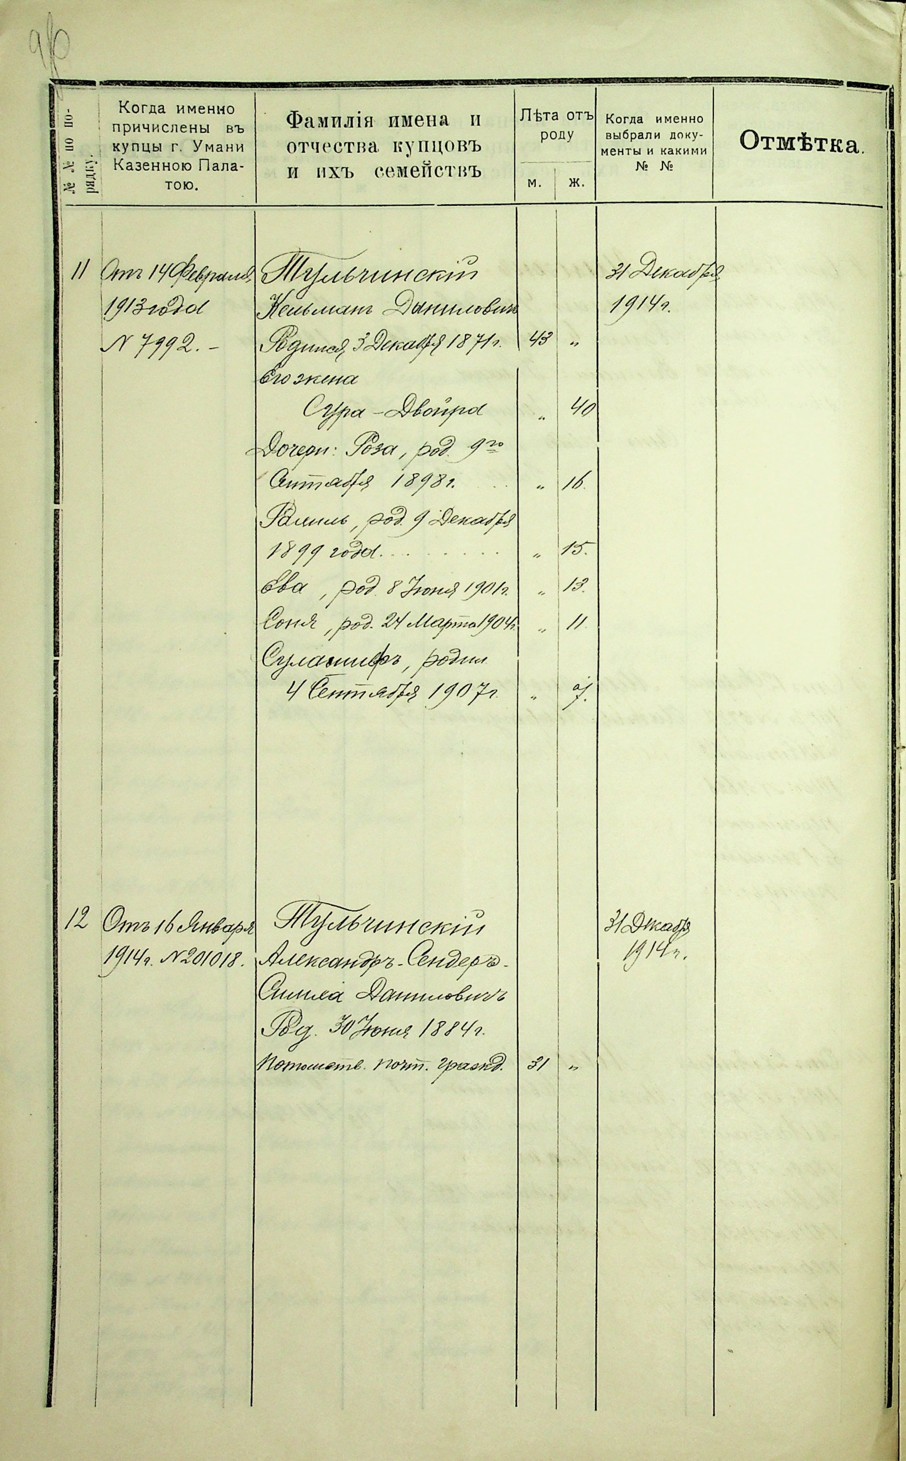 № № по по-
рядку.
Когда именно
причислены въ
купцы г. Умани
Казенною Пала-
тою.
Фамилія имена и
отчества купцовъ
и ихъ семействъ
Лѣта отъ
роду
м. ж.
Когда именно
выбрали доку-
менты и какими
№ №
Отмѣтка.
11 Отъ 14 Февраля Тульчинскій 31 Декабря
1913 года Кельманъ Даниловичъ 1914 г.
N 7992. – Родился 3 Декабря 1871 г. 43 "
Его жена
Сура-Двойра " 40
Дочери: Роза, род. 9го
Сентября 1898 г. " 16.
Рахиль, род. 9 Декабря
1899 года " 15.
Ева, род. 8 Іюня 1901 г. " 13.
Соня, род. 24 Марта 1904 г. " 11
Суламифь, родил
4 Сентября 1907 г. "
12 Отъ 16 Января Тульчинскій 31 Декабря
1914 г. N 201018. Александръ-Сендеръ- 1914 г.
Даниловичъ
Род. 30 Іюня 1884 г.
Потомств. почт. гражд. 31 "